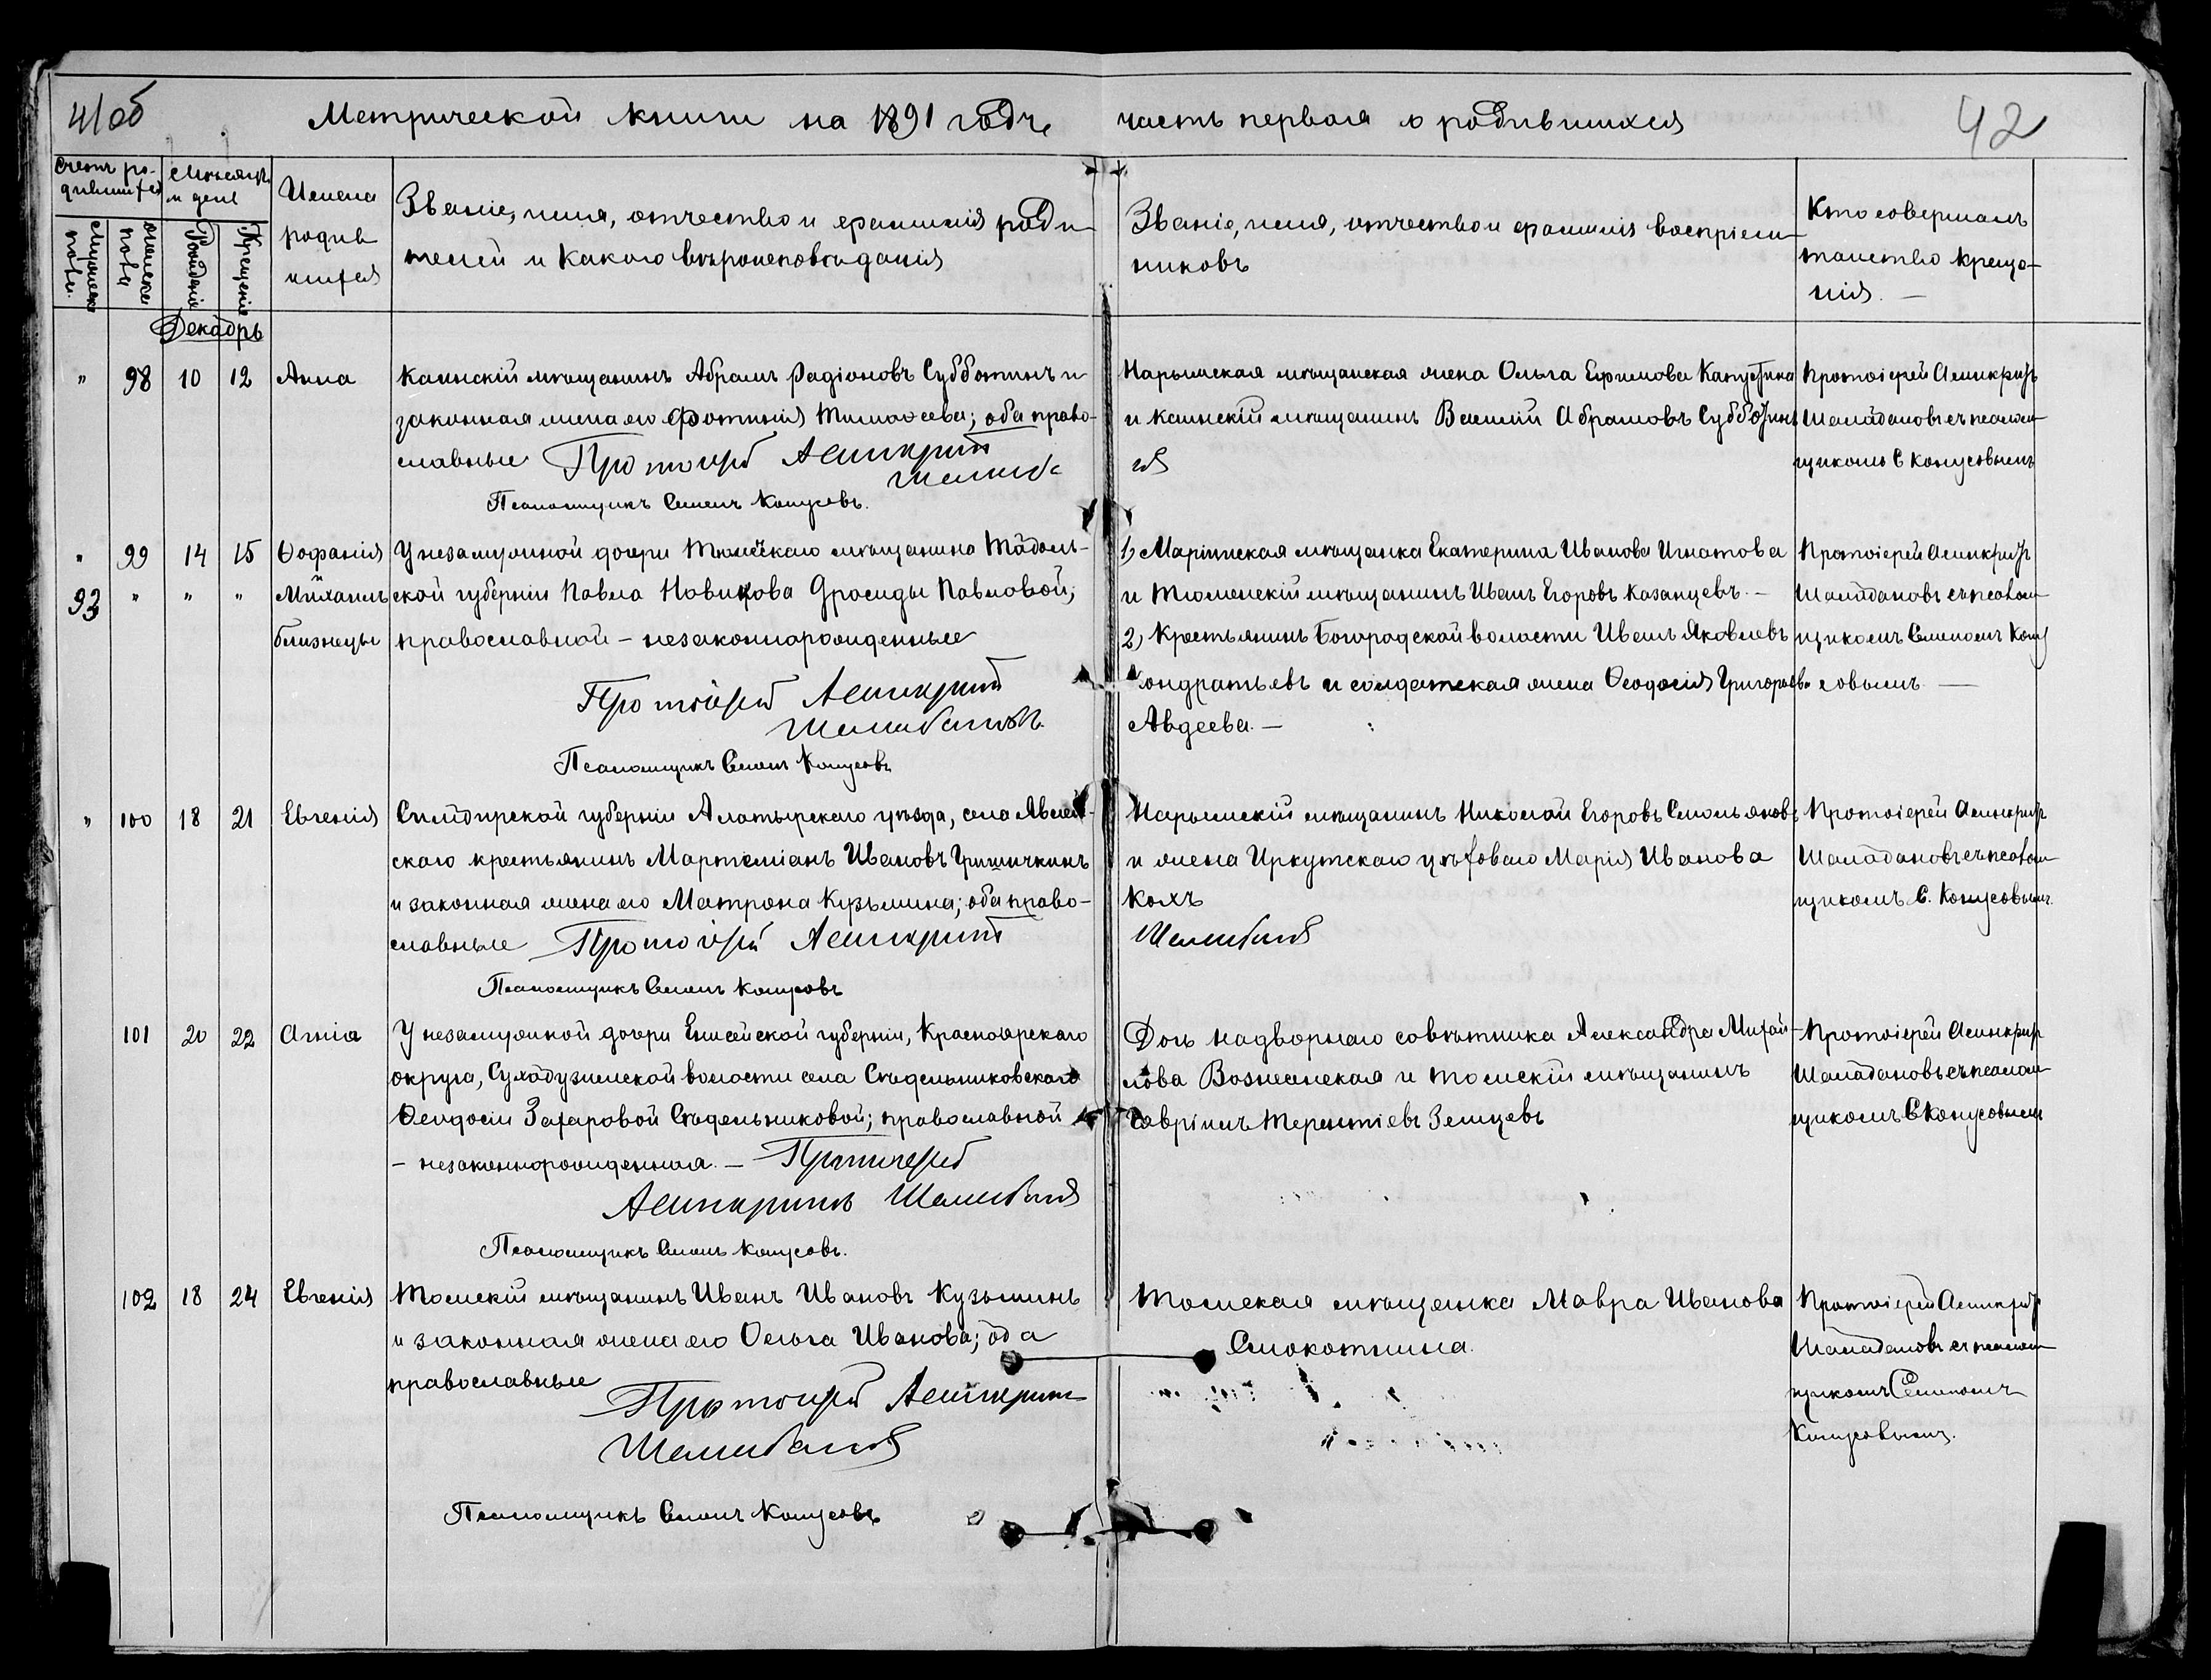 41 об
Метрической книги на 1891 годъ часть первая о родившихся
42
Счетъ ро-
дившихся
Мѣсяцъ
и день
Мужеска
пола.
женска
пола
Рожденія
Крещенія
Имена
родив
шихся
Званіе, имя, отчество и фамилія роди
телей и какого вѣроисповѣданія
Званіе, имя, отчество и фамилія воспріем-
никовъ
Кто совершалъ
таинство креще-
нія. —
Декабрь
" 98 10 12 Анна
Каинскій мѣщанинъ Абрамъ Радіоновъ Субботинъ и
законная жена его Фотинія Тимофеева; оба право-
славные Протоіерей Асинкритъ
Шалаб
Псаломщикъ Семенъ Конусовъ.
Нарымская мѣщанская жена Ольга Ефимова Капустина
и Каинскій мѣщанинъ Василій Абрамовъ Субботинъ
Протоіерей Асинкритъ
Шалабановъ съ псалом
щикомъ С Конусовымъ
" 99 14 15 Ѳофанія
93 " " " Михаилъ
близнецы
У незамужной дочери Тюменскаго мѣщанина Тоболь-
ской губерніи Павла Новикова Дросиды Павловой;
православной - незаконнорожденные
Протоіерей Асинкритъ
Шалабановъ.
Псаломщикъ Семенъ Конусовъ
1) Маріинская мѣщанка Екатерина Иванова Игнатова
и Тюменскій мѣщанинъ Иванъ Егоровъ Казанцевъ. -
2) Крестьянинъ Богородской волости Иванъ Яковлевъ
Кондратьевъ и солдатская жена Ѳеодосія Григорьева
Авдеева. —
Протоіерей Асинкритъ
Шалабановъ съ псалом
щикомъ Семеномъ Кону
совымъ —
" 100 18 21 Евгенія
Симбирской губерніи Алатырскаго уѣзда, села Явлей-
скаго крестьянинъ Мартеміанъ Ивановъ Гришичкинъ
и законная жена его Матрона Кузьмина; оба право-
славные Протоіерей Асинкритъ
Псаломщикъ Семенъ Конусовъ
Нарымскій мѣщанинъ Николай Егоровъ Смольяновъ
и жена Иркутскаго цѣховаго Марія Иванова
Кохъ
Шалабановъ
Протоіерей Асинкритъ
Шалабановъ съ псалом
щикомъ С. Конусовымъ.
101 20 22 Агнія
У незамужной дочери Енисейской губерніи, Красноярскаго
округа, Сухобузимской волости села Сѣдельниковскаго
Ѳеодосіи Захаровой Сѣдельниковой; православной
- незаконнорожденная. — Протоіерей
Асинкритъ Шалабановъ
Псаломщикъ Семенъ Конусовъ.
Дочь надворнаго совѣтника Александра Михай-
лова Вознесенская и томскій мѣщанинъ
Гавріилъ Терентіевъ Земцевъ
Протоіерей Асинкритъ
Шалабановъ съ псалом
щикомъ С Конусовымъ
102 18 24 Евгенія
Томскій мѣщанинъ Иванъ Ивановъ Кузьминъ
и законная жена его Ольга Иванова; оба
православные
Протоіерей Асинкритъ
Шалабановъ
Псаломщикъ Семенъ Конусовъ
Томская мѣщанка Мавра Иванова
Смокотнина.
Протоіерей Асинкритъ
Шалабановъ съ псалом
щикомъ Семеномъ
Конусовымъ.